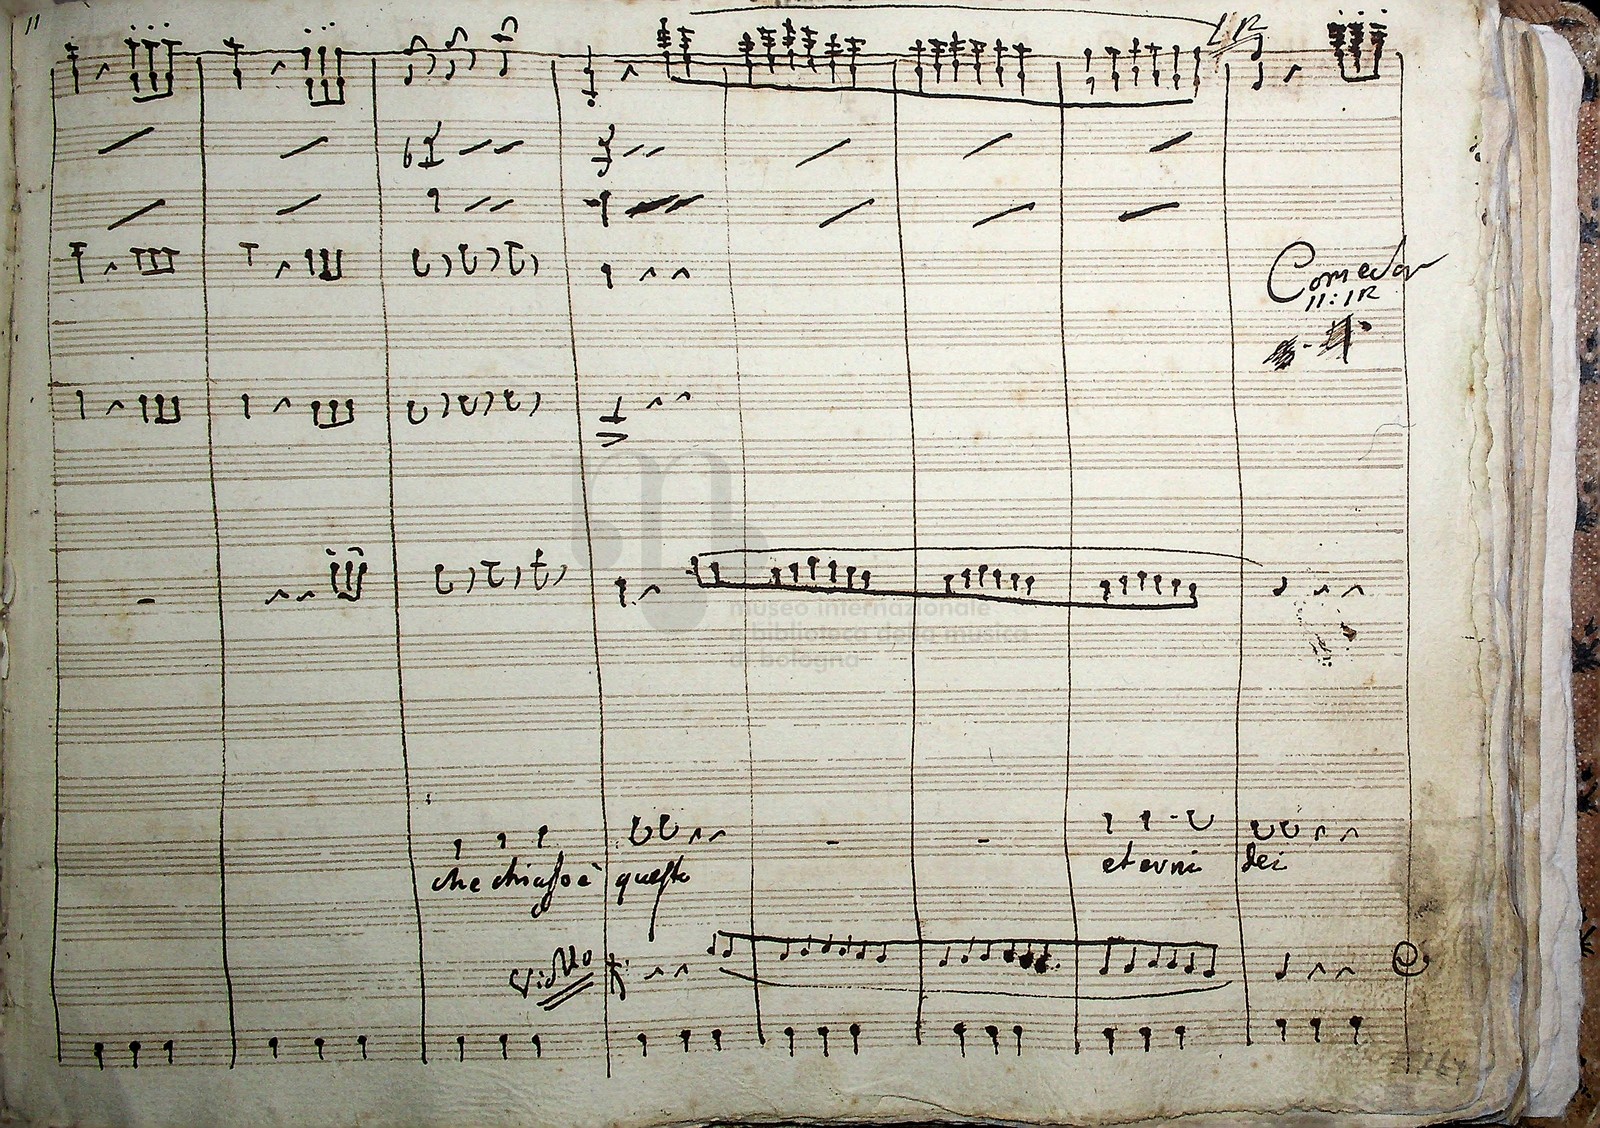 11
12
Come da
11:12
museo internazionale
e biblioteca della musica
di bologna
che chiasso è questo
eterni Dei